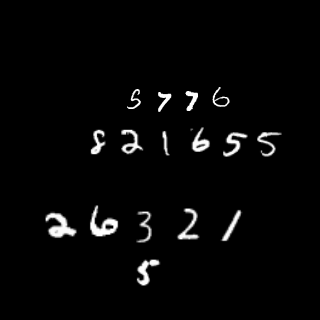 5776
821655
26321
5